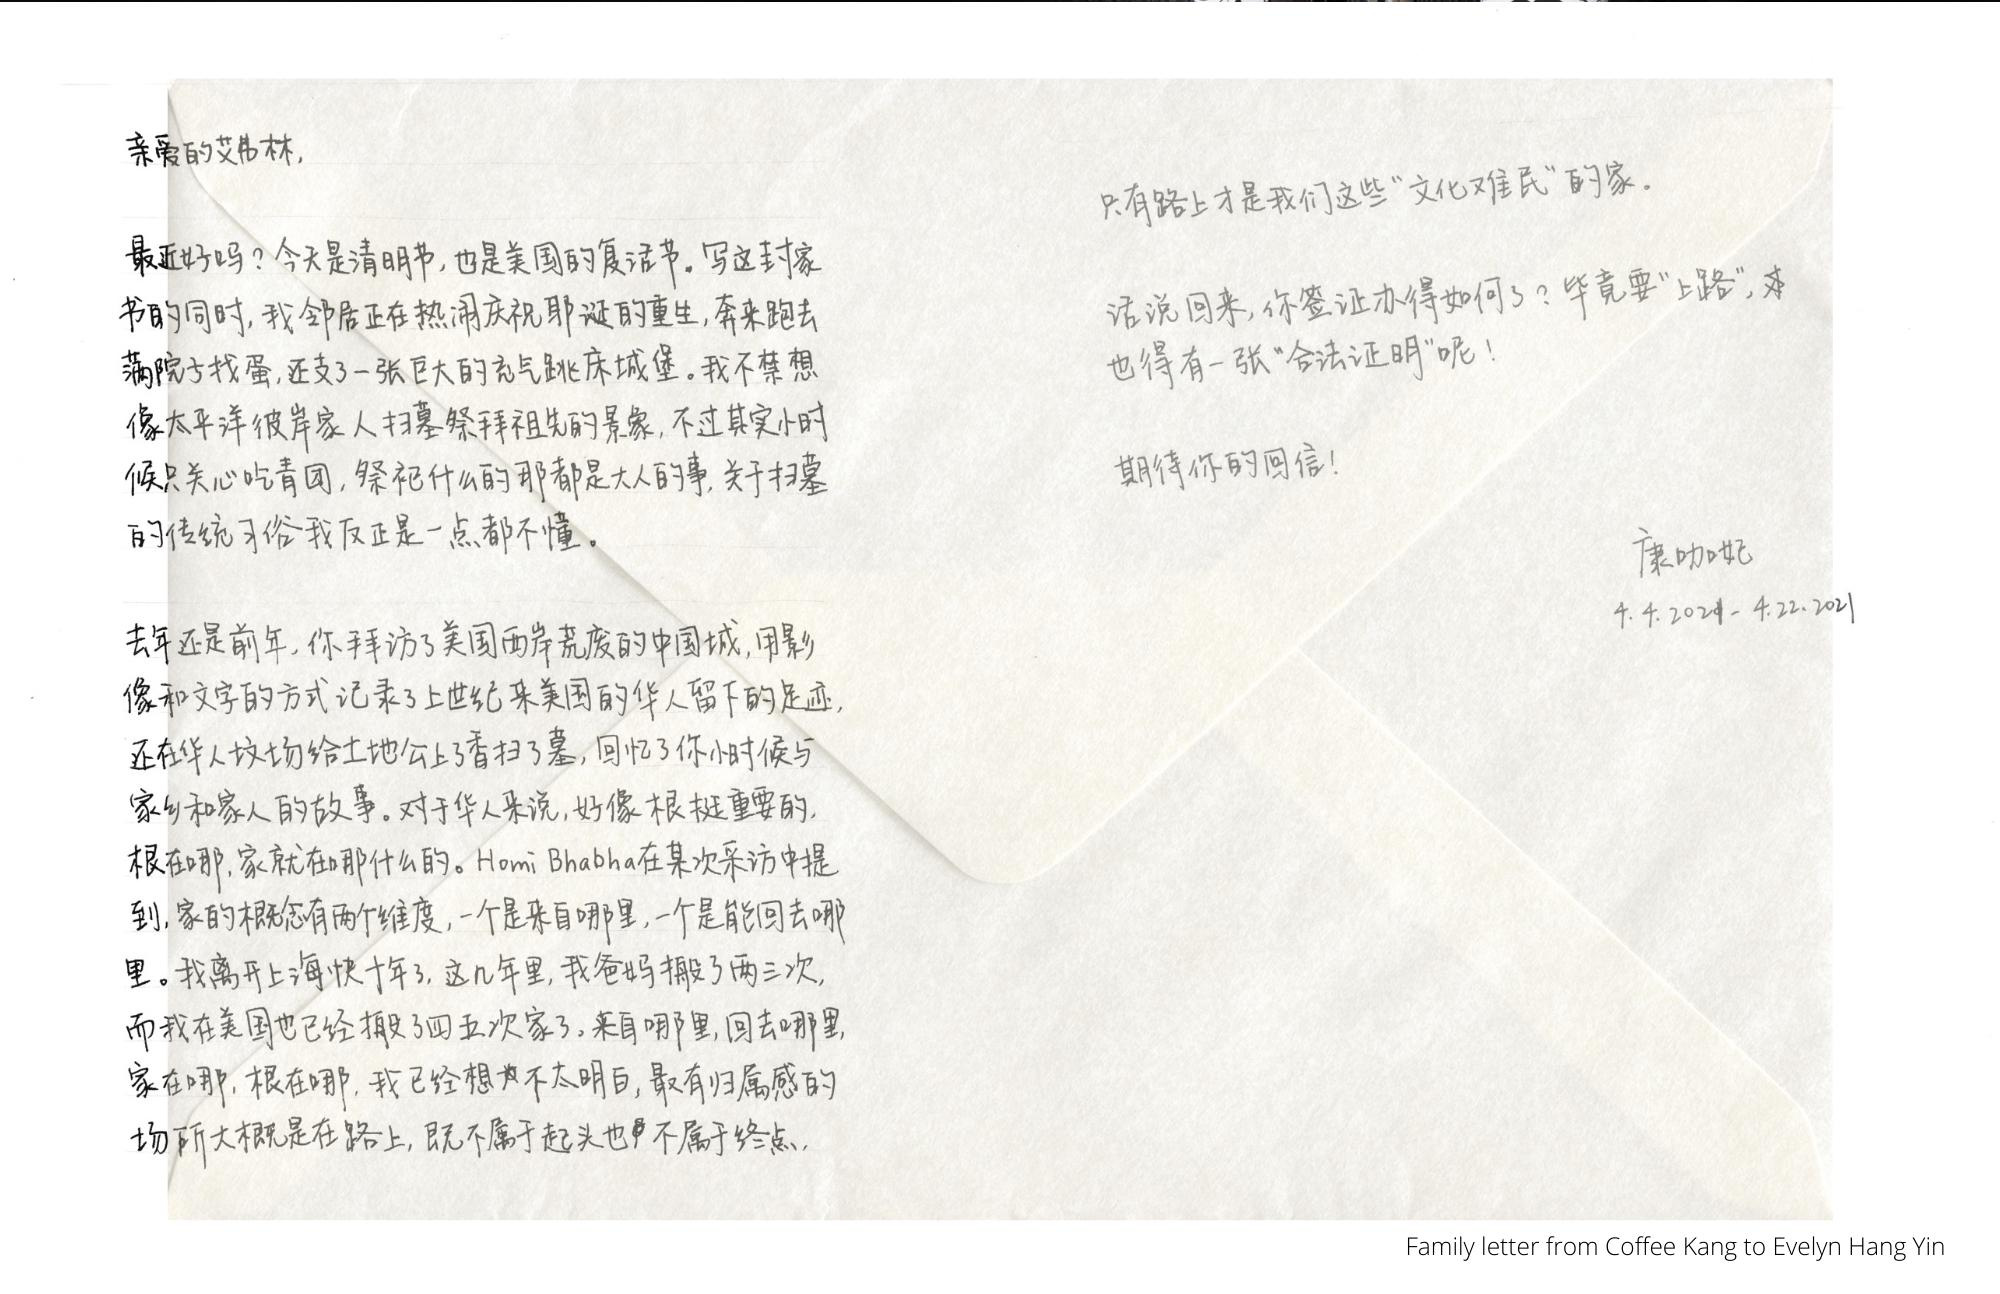 亲爱的艾弗林,
最近好吗？今天是清明节,也是美国的复活节。写这封家
书的同时,我邻居正在热闹庆祝耶诞的重生,奔来跑去
满院子找蛋,还支了一张巨大的充气跳床城堡。我不禁想
像太平洋彼岸家人扫墓祭拜祖先的景象,不过其实小时
候只关心吃青团,祭祀什么的那都是大人的事,关于扫墓
的传统习俗我反正是一点都不懂。
去年还是前年,你拜访了美国两岸荒废的中国城,用影
像和文字的方式记录了上世纪来美国的华人留下的足迹,
还在华人坟场给土地公上了香扫了墓,回忆了你小时候与
家乡和家人的故事。对于华人来说,好像根挺重要的,
根在哪,家就在哪什么的。Homi Bhabha在某次采访中提
到,家的概念有两个维度,一个是来自哪里,一个是能回去哪
里。我离开上海快十年了,这几年里,我爸妈搬了两三次,
而我在美国也已经搬了四五次家了。来自哪里,回去哪里,
家在哪,根在哪,我已经想不太明白,最有归属感的
场所大概是在路上,既不属于起头也不属于终点,
只有路上才是我们这些“文化难民”的家。
话说回来,你签证办得如何了？毕竟要“上路”,
也得有一张“合法证明”呢！
期待你的回信！
康咖妃
4.4.2021 - 4.22.2021
Family letter from Coffee Kang to Evelyn Hang Yin